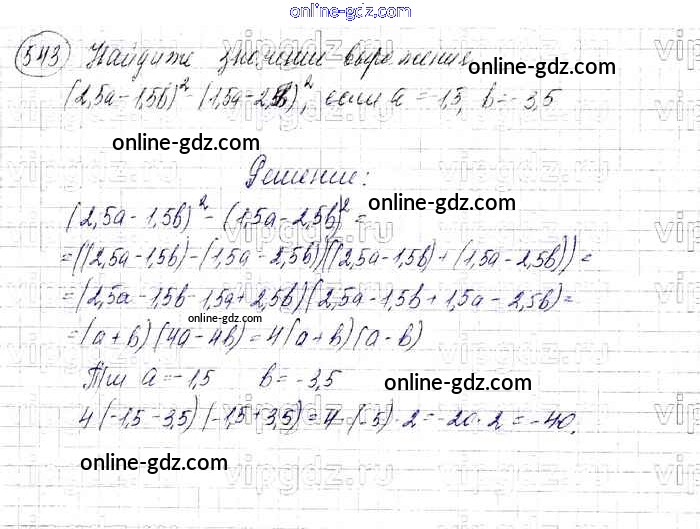 online-gdz.com
543 Найдите значение выражения
(2,5a-1,5b)² - (1,5a-2,5b)², если a = -1,5, b = -3,5
online-gdz.com
online-gdz.com
Решение:
online-gdz.com
(2,5a-1,5b)² - (1,5a-2,5b)² =
=((2,5a-1,5b)-(1,5a-2,5b))((2,5a-1,5b)+(1,5a-2,5b))=
=(2,5a-1,5b-1,5a+2,5b)(2,5a-1,5b+1,5a-2,5b)=
online-gdz.com
=(a+b)(4a-4b)=4(a+b)(a-b)
При a=-1,5 b=-3,5
online-gdz.com
4(-1,5-3,5)(-1,5+3,5)=4·(-5)·2=-20·2=-40.
online-gdz.com
online-gdz.com